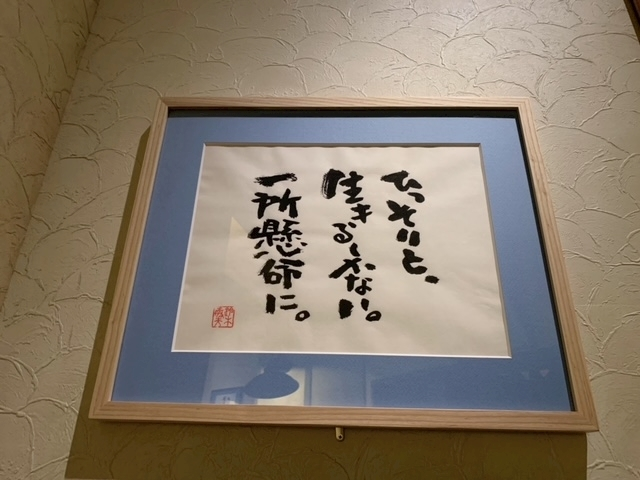 ひっそりと、
生きるしかない。
一所懸命に。